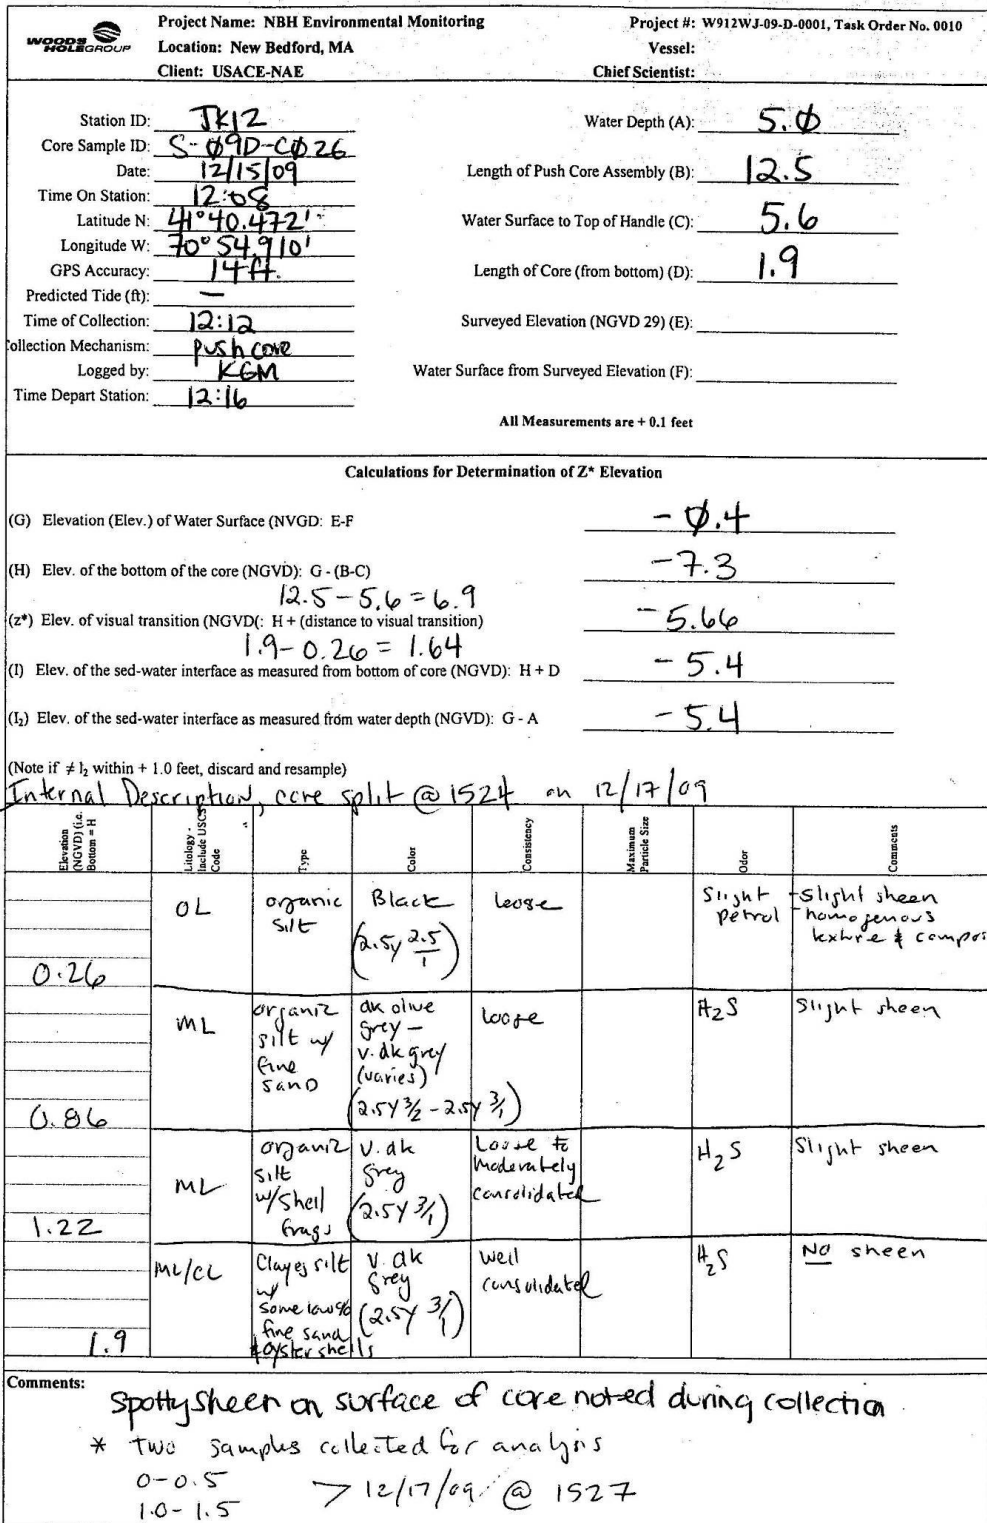 WOODS HOLE GROUP
Project Name: NBH Environmental Monitoring
Project #: W912WJ-09-D-0001, Task Order No. 0010
Location: New Bedford, MA
Vessel:
Client: USACE-NAE
Chief Scientist:
Station ID: JK12
Core Sample ID: S-Ø9D-CØ26
Date: 12/15/09
Time On Station: 12:08
Latitude N: 41°40.472'
Longitude W: 70°54.910'
GPS Accuracy: 14ft.
Predicted Tide (ft): —
Time of Collection: 12:12
ollection Mechanism: push core
Logged by: KGM
Time Depart Station: 12:16
Water Depth (A): 5.Ø
Length of Push Core Assembly (B): 12.5
Water Surface to Top of Handle (C): 5.6
Length of Core (from bottom) (D): 1.9
Surveyed Elevation (NGVD 29) (E):
Water Surface from Surveyed Elevation (F):
All Measurements are + 0.1 feet
Calculations for Determination of Z* Elevation
(G) Elevation (Elev.) of Water Surface (NVGD: E-F -Ø.4
(H) Elev. of the bottom of the core (NGVD): G - (B-C) -7.3
12.5-5.6=6.9
(z*) Elev. of visual transition (NGVD(: H + (distance to visual transition) -5.66
1.9-0.26=1.64
(I) Elev. of the sed-water interface as measured from bottom of core (NGVD): H + D -5.4
(I₂) Elev. of the sed-water interface as measured from water depth (NGVD): G - A -5.4
(Note if ≠ I₂ within + 1.0 feet, discard and resample)
Internal Description, core split @ 1524 on 12/17/09
Elevation (NGVD) (i.e. Bottom = H
Litology - Include USCS Code
Type
Color
Consistency
Maximum Particle Size
Odor
Comments
0.26
OL
organic
silt
Black
(2.5y 2.5/1)
loose
Slight
petrol
-Slight sheen
-homogenous
texture & compos
0.86
ML
organic
silt w/
fine
sand
dk olive
grey -
v. dk grey
(varies)
(2.5Y 3/2 - 2.5Y 3/1)
loose
H₂S
Slight sheen
1.22
ML
organic
silt
w/shell
frags
v. dk
grey
(2.5Y 3/1)
Loose to
moderately
consolidated
H₂S
Slight sheen
1.9
ML/CL
Clayey silt
w/
some low %
fine sand
& oyster shells
v. dk
grey
(2.5Y 3/1)
well
consolidated
H₂S
No sheen
Comments:
Spotty sheen on surface of core noted during collection
* two samples collected for analysis
0-0.5
1.0-1.5
> 12/17/09 @ 1527